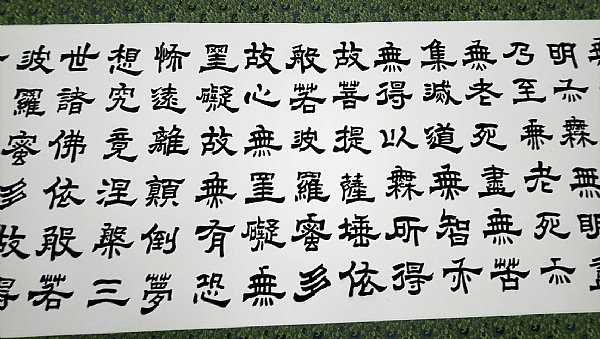 無
明亦無無明盡
乃至無老死亦
無老死盡無苦
集滅道無智亦
無得以無所得
故菩提薩埵依
般若波羅蜜多
故心無罣礙無
罣礙故無有恐
怖遠離顛倒夢
想究竟涅槃三
世諸佛依般若
波羅蜜多故得